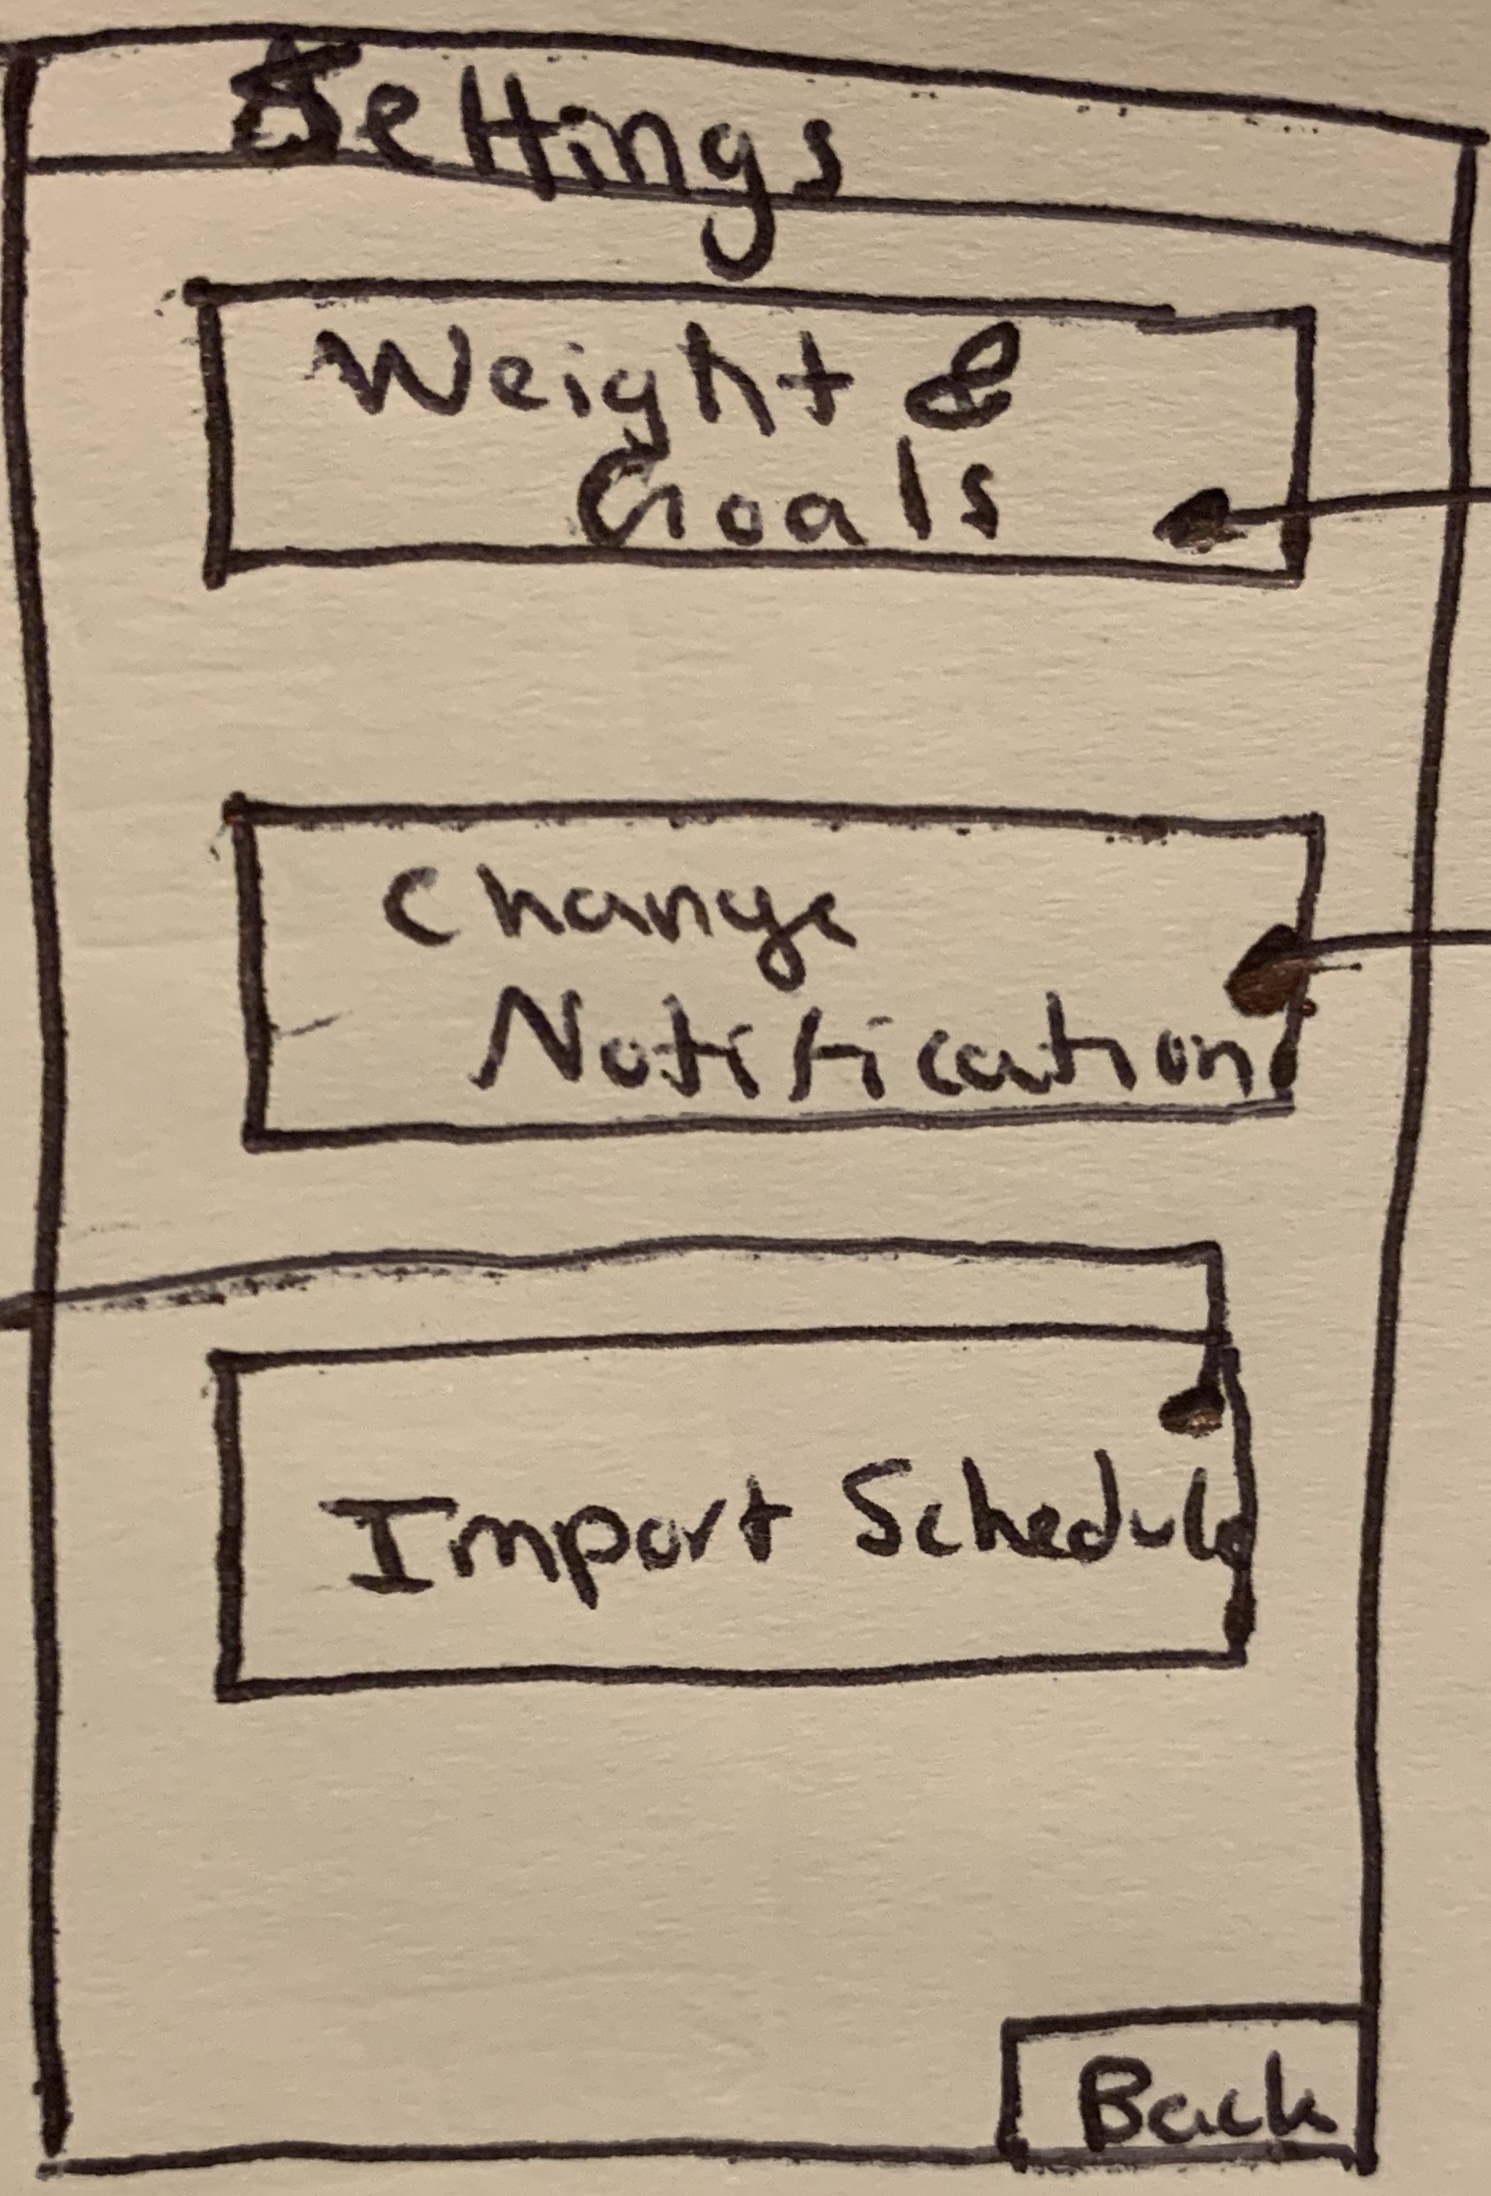 Settings
Weight &
Goals
Change
Notification
Import Schedule
Back